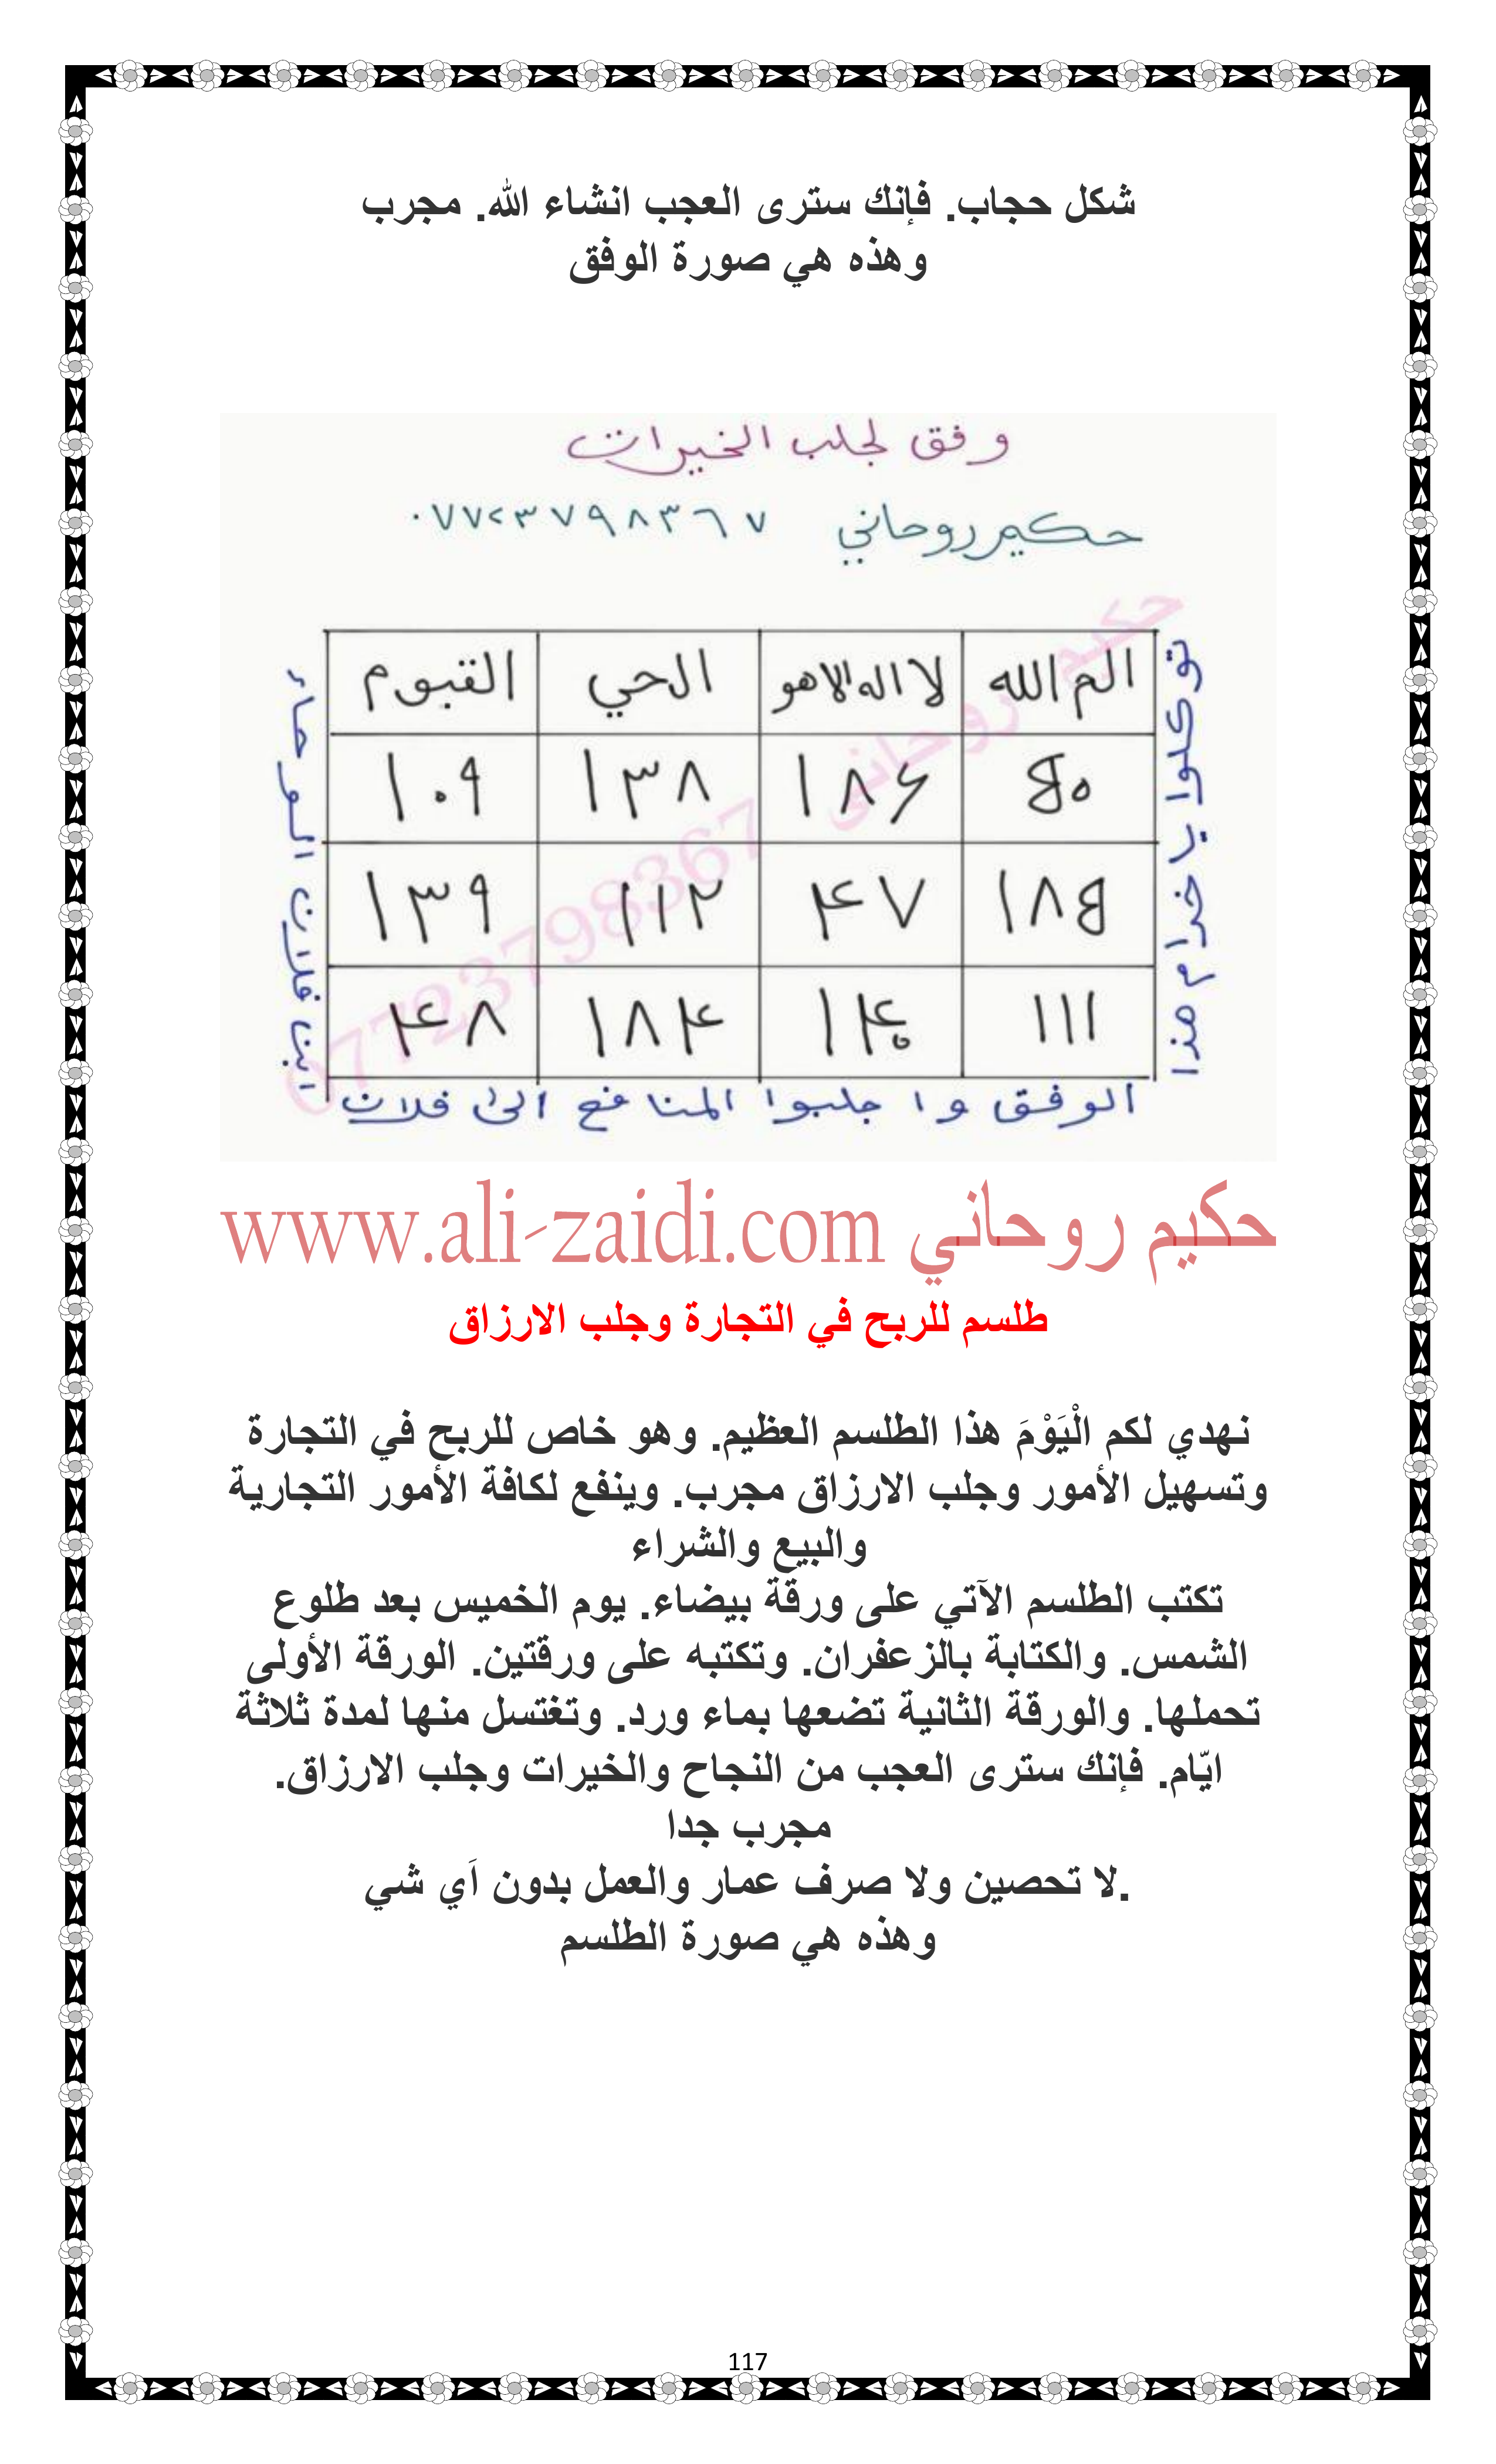 شكل حجاب. فإنك سترى العجب انشاء الله. مجرب
وهذه هي صورة الوفق
وفق لجلب الخيرات
حكيم روحاني ٠٧٧٢٣٧٩٨٣٦٧
الم الله لا اله الا هو الحي القيوم
٥٠ ١٨۶ ١٣٨ ١٠٩
١٨٥ ۴٧ ١١٢ ١٣٩
١١١ ١۴٠ ١٨۴ ۴٨
توكلوا يا خدام هذا
الوفق وا جلبوا المنافع الى فلان
ابن فلان
حكيم روحاني 07723798367
حكيم روحاني www.ali-zaidi.com
طلسم للربح في التجارة وجلب الارزاق
نهدي لكم الْيَوْمَ هذا الطلسم العظيم. وهو خاص للربح في التجارة
وتسهيل الأمور وجلب الارزاق مجرب. وينفع لكافة الأمور التجارية
والبيع والشراء
تكتب الطلسم الآتي على ورقة بيضاء. يوم الخميس بعد طلوع
الشمس. والكتابة بالزعفران. وتكتبه على ورقتين. الورقة الأولى
تحملها. والورقة الثانية تضعها بماء ورد. وتغتسل منها لمدة ثلاثة
ايّام. فإنك سترى العجب من النجاح والخيرات وجلب الارزاق.
مجرب جدا
.لا تحصين ولا صرف عمار والعمل بدون اَي شي
وهذه هي صورة الطلسم
117